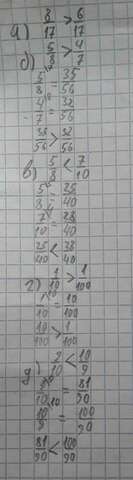 а) 8/17 > 6/17
б) 5/8 > 4/7
5/8 = 35/56
4/7 = 32/56
35/56 > 32/56
в) 5/8 < 7/10
5/8 = 25/40
7/10 = 28/40
25/40 < 28/40
г) 1/10 > 1/100
1/10 = 10/100
10/100 > 1/100
д) < 10/9
= 81/90
10/9 = 100/90
81/90 < 100/90